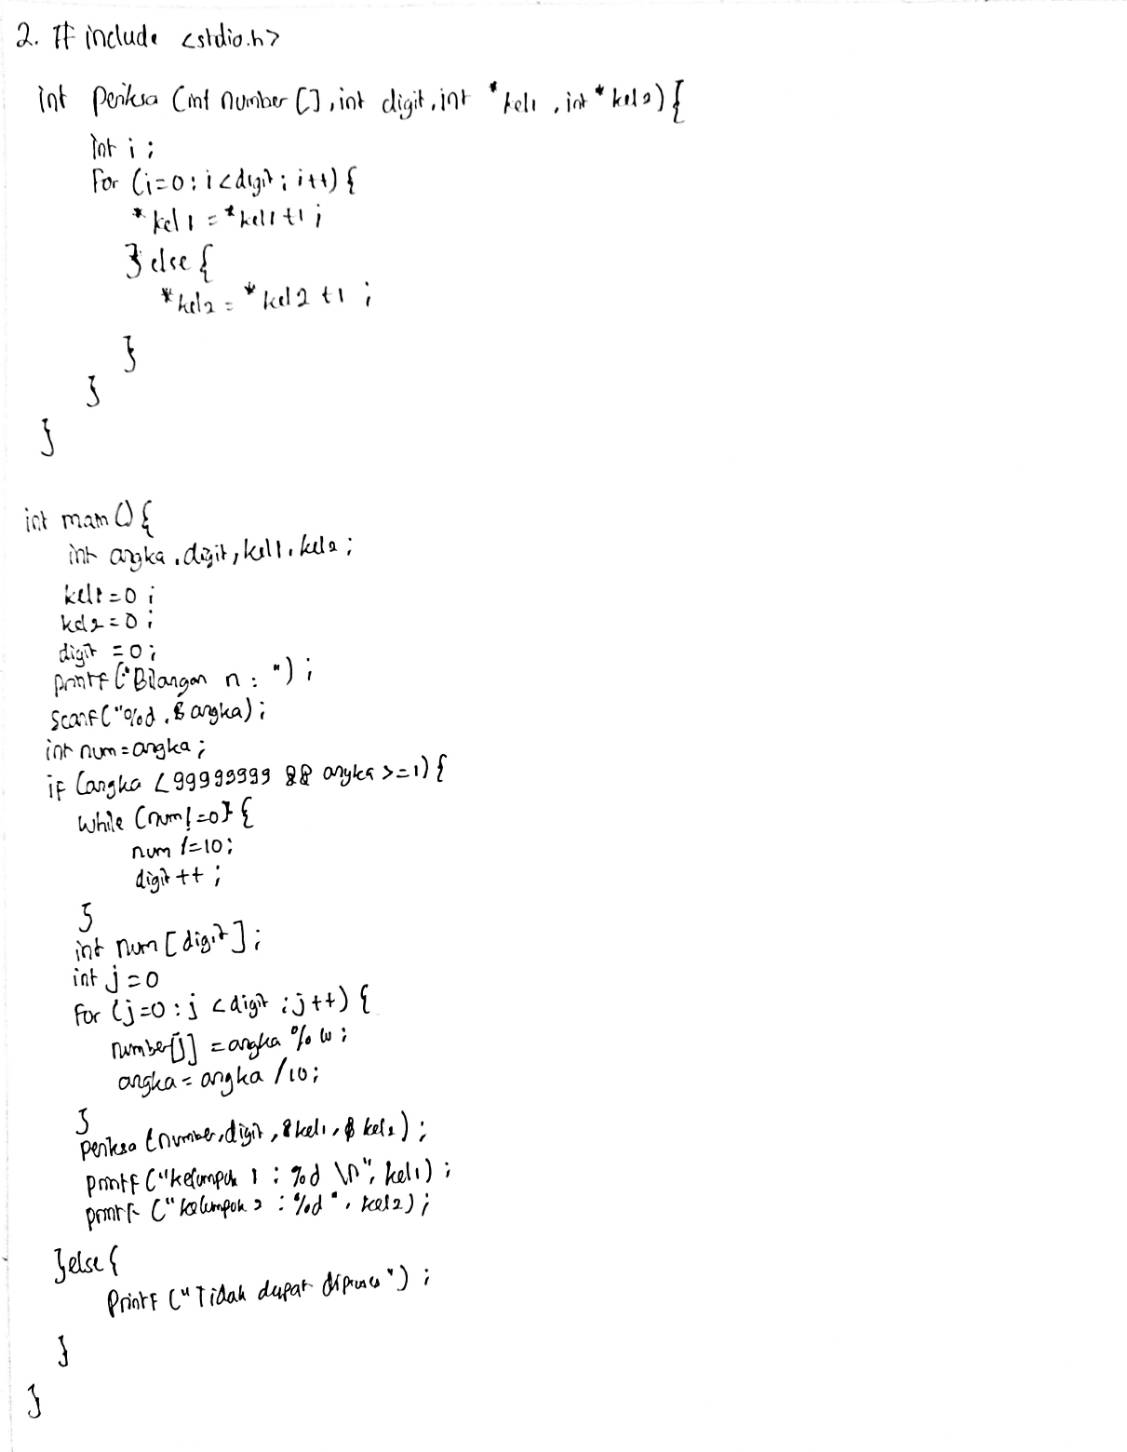 2. # include <stdio.h>
int periksa (int number [], int digit, int *kel1, int *kel2) {
int i ;
for (i=0 ; i<digit ; i++) {
*kel1 = *kel1+1 ;
} else {
*kel2 = *kel2 +1 ;
}
}
}
int main () {
int angka, digit, kel1, kel2 ;
kel1=0 ;
kel2=0 ;
digit =0 ;
printf ("Bilangan n : ") ;
scanf ("%d, & angka) ;
int num=angka ;
if (angka <99999999 && angka >=1) {
while (num!=0} {
num /=10;
digit ++ ;
}
int num [digit] ;
int j=0
for (j=0 : j <digit ; j++) {
number[j] = angka % 10 ;
angka = angka /10;
}
periksa (number, digit, &kel1, & kel2) ;
printf ("kelompok 1 : %d \n", kel1) ;
printf ("kelompok 2 : %d", kel2) ;
}else {
printf ("Tidak dapat diproses") ;
}
}